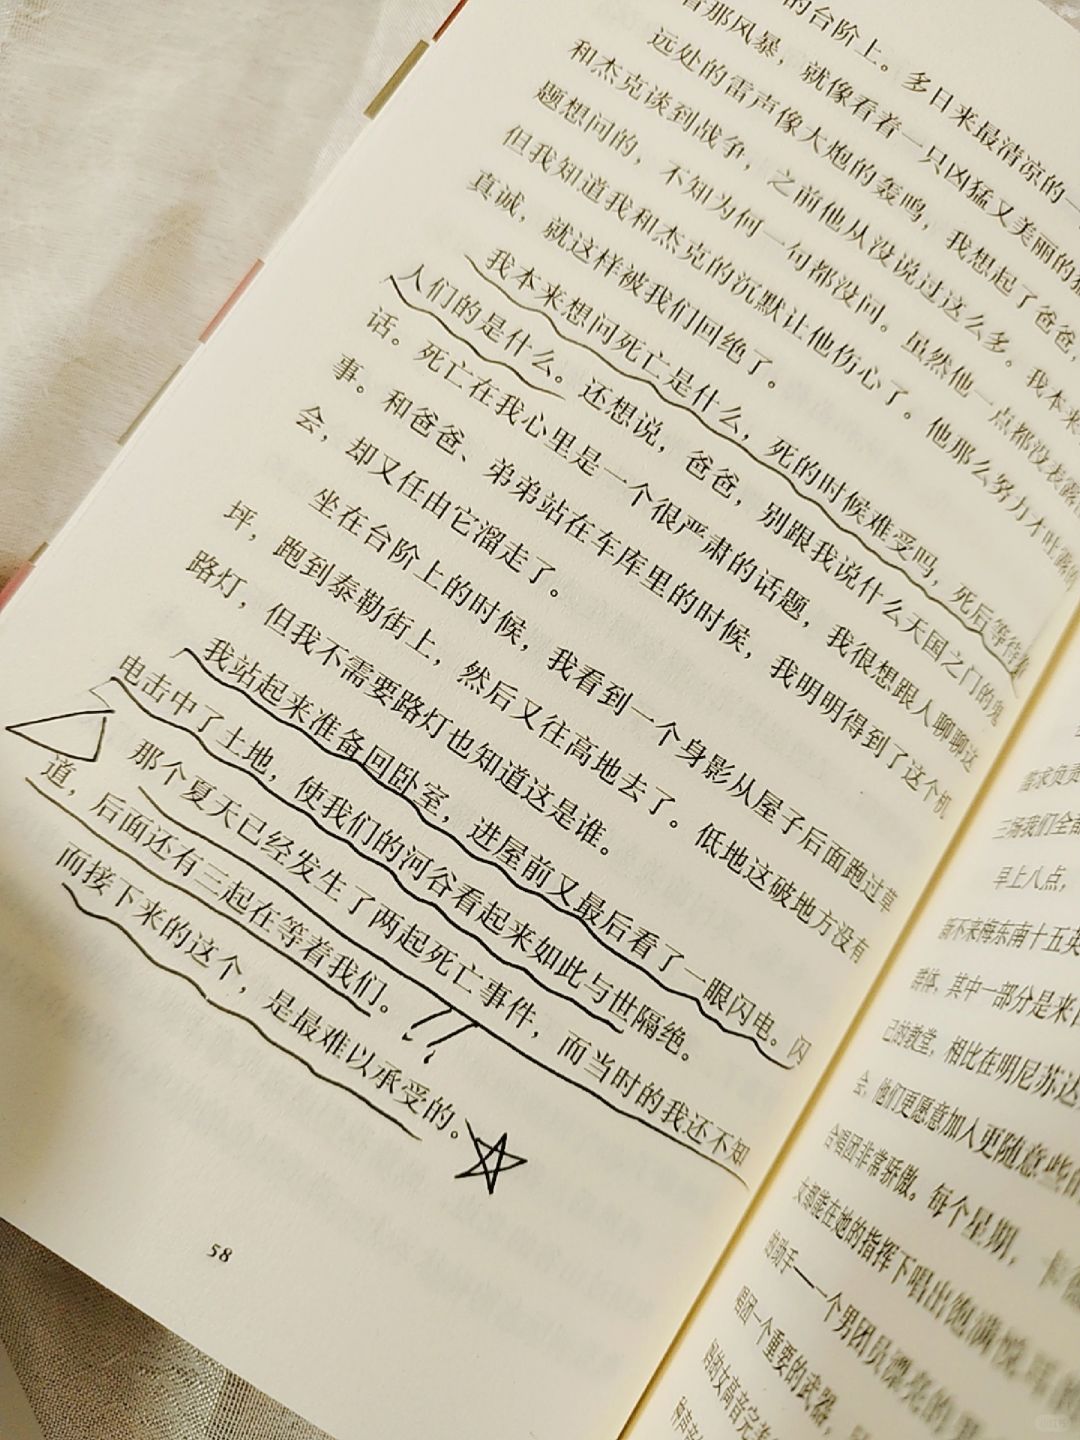 的台阶上。多日来最清凉的一
着那风暴，就像看着一只凶猛又美丽的
远处的雷声像大炮的轰鸣，我想起了爸爸，
和杰克谈到战争，之前他从没说过这么多。我本来
题想问的，不知为何一句都没问。虽然他一点都没表露
但我知道我和杰克的沉默让他伤心了。他那么努力才吐露的
真诚，就这样被我们回绝了。
我本来想问死亡是什么，死的时候难受吗，死后等待
人们的是什么。还想说，爸爸，别跟我说什么天国之门的鬼
话。死亡在我心里是一个很严肃的话题，我很想跟人聊聊这
事。和爸爸、弟弟站在车库里的时候，我明明得到了这个机
会，却又任由它溜走了。
坐在台阶上的时候，我看到一个身影从屋子后面跑过草
坪，跑到泰勒街上，然后又往高地去了。低地这破地方没有
路灯，但我不需要路灯也知道这是谁。
我站起来准备回卧室，进屋前又最后看了一眼闪电。闪
电击中了土地，使我们的河谷看起来如此与世隔绝。
那个夏天已经发生了两起死亡事件，而当时的我还不知
道，后面还有三起在等着我们。
而接下来的这个，是最难以承受的。
58
三场我们全都
早上八点，
新不来梅东南十五英
群体，其中一部分是来自
己的教堂，相比在明尼苏达
会，他们更愿意加入更随意些的
合唱团非常骄傲。每个星期，
女都能在她的指挥下唱出饱满
的助手——一个男团员漂亮的
唱团一个重要的武器，